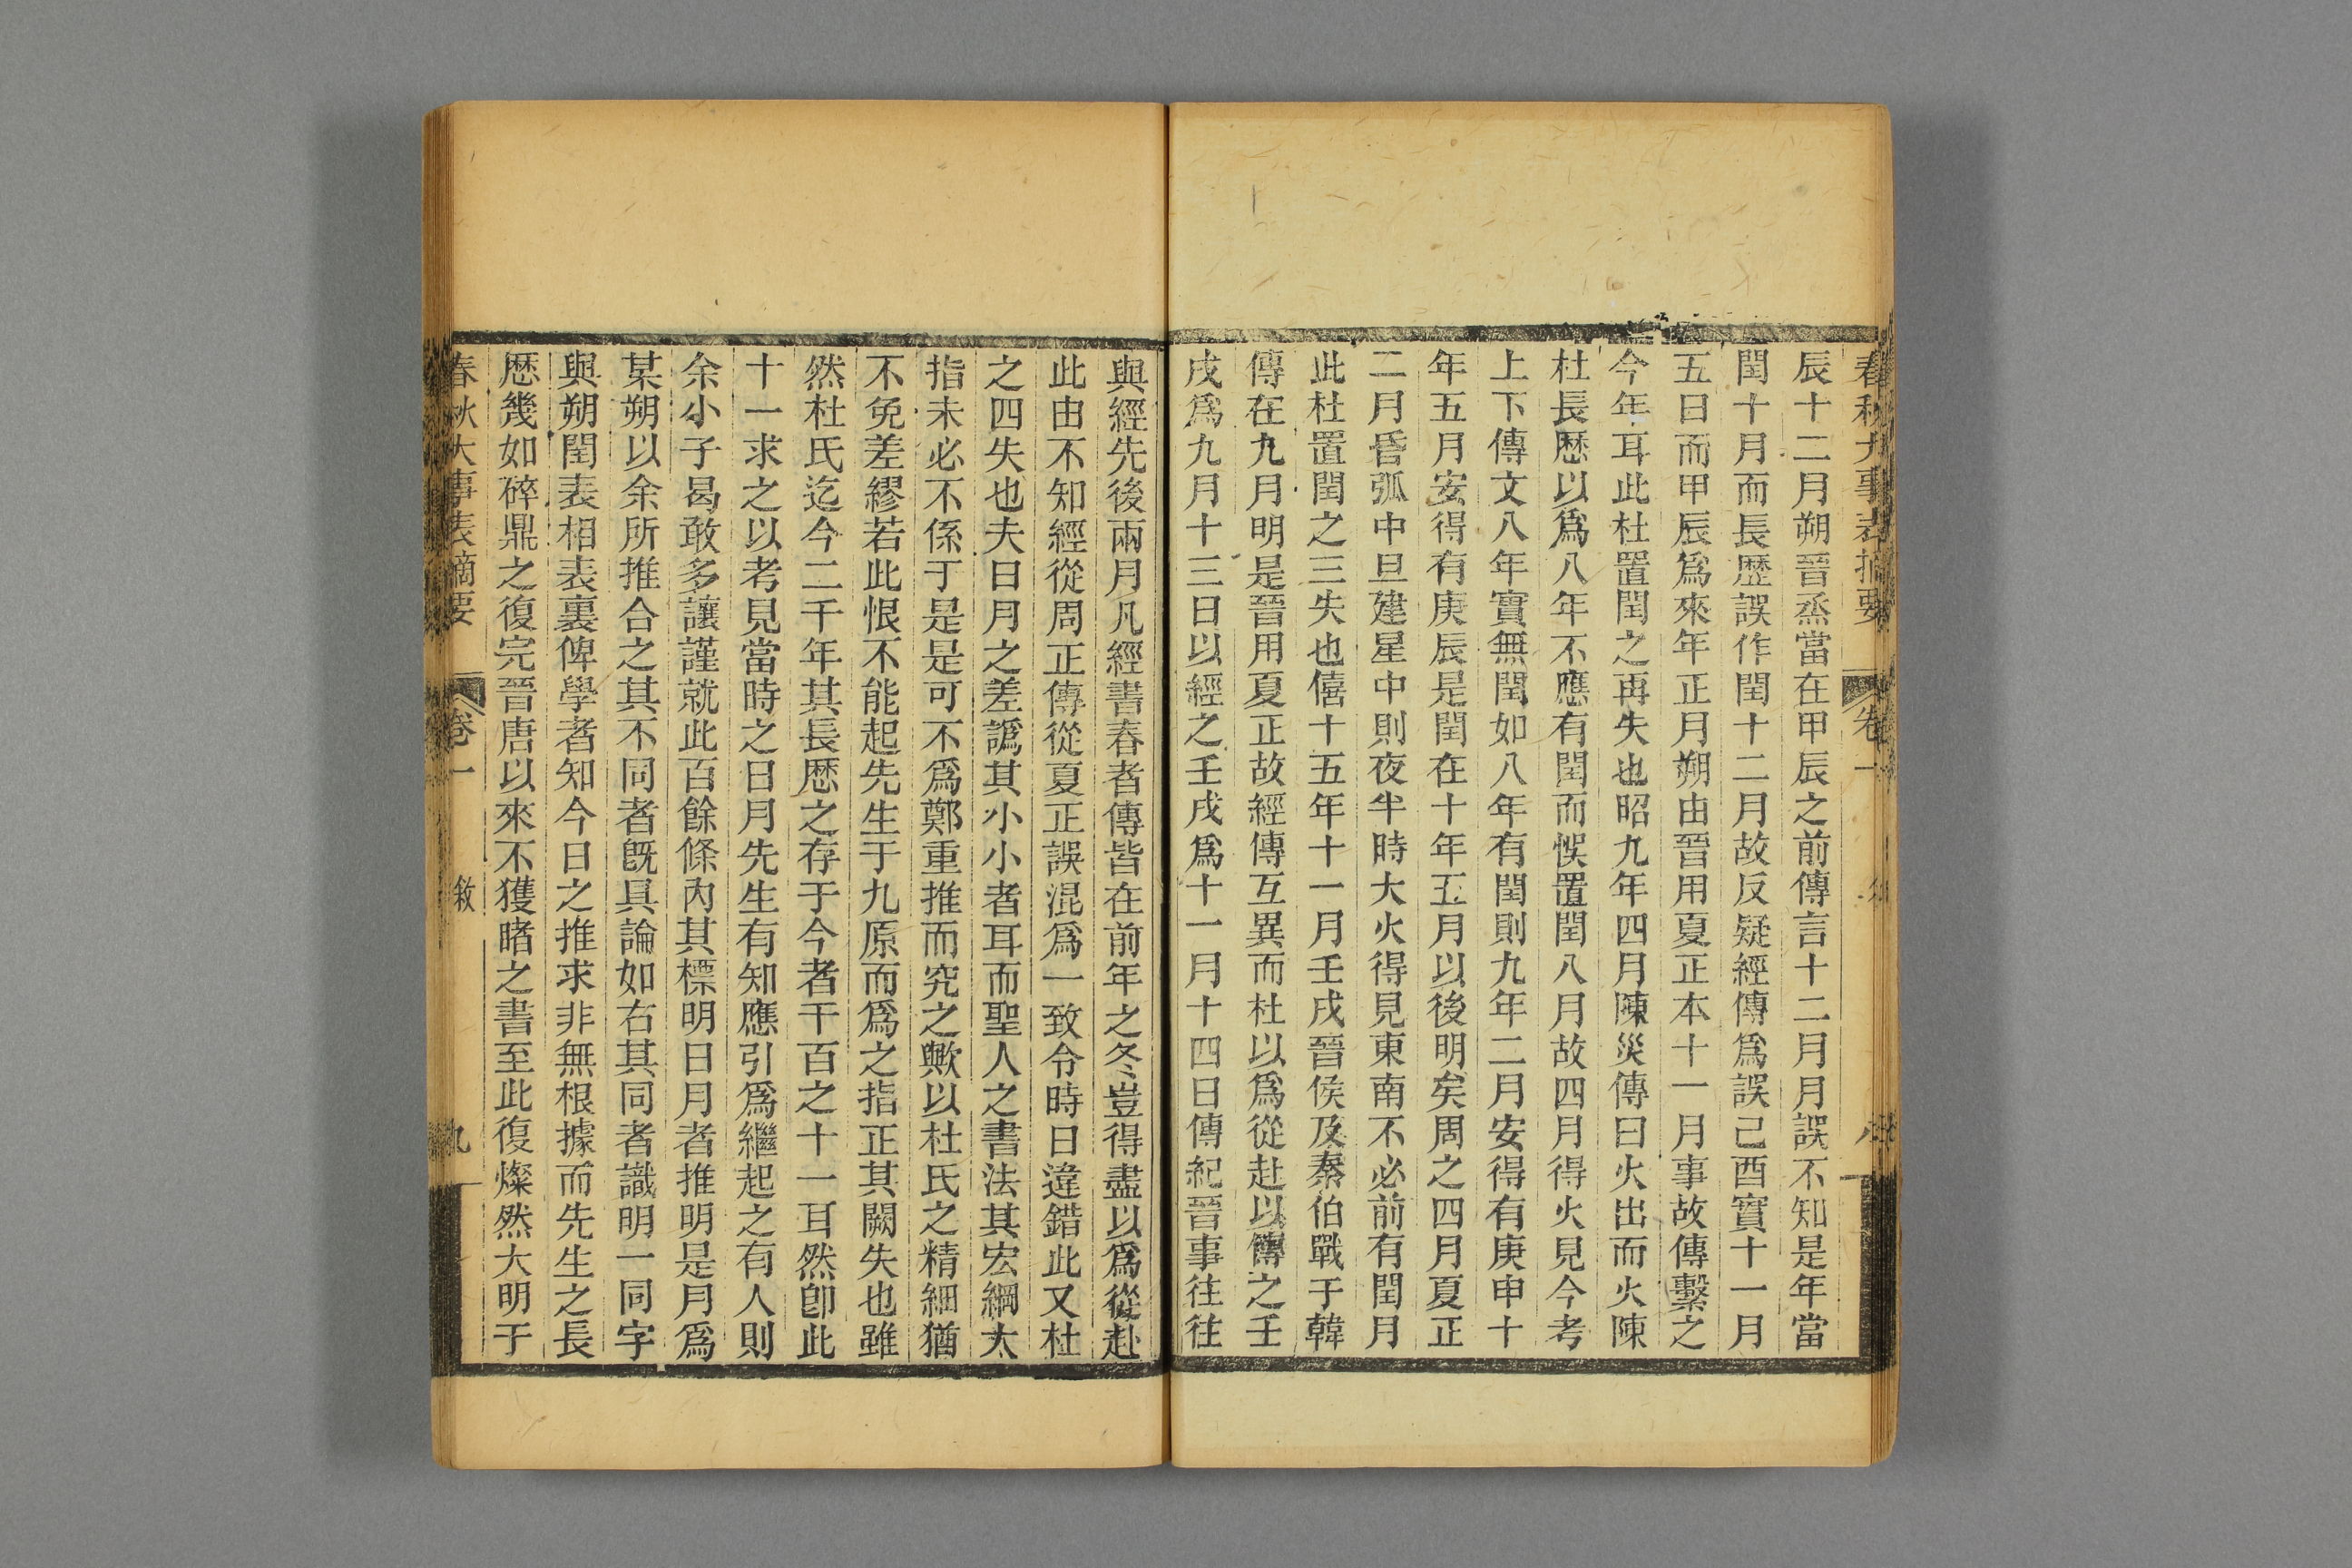 春秋大事表摘要 卷一 八
辰十二月朔晉烝當在甲辰之前傳言十二月月誤不知是年當
閏十月而長歷誤作閏十二月故反疑經傳爲誤己酉實十一月
五日而甲辰爲來年正月朔由晉用夏正本十一月事故傳繫之
今年耳此杜置閏之再失也昭九年四月陳災傳曰火出而火陳
杜長歷以爲八年不應有閏而悞置閏八月故四月得火見今考
上下傳文八年實無閏如八年有閏則九年二月安得有庚申十
年五月安得有庚辰是閏在十年五月以後明矣周之四月夏正
二月昏弧中旦建星中則夜半時大火得見東南不必前有閏月
此杜置閏之三失也僖十五年十一月壬戌晉侯及秦伯戰于韓
傳在九月明是晉用夏正故經傳互異而杜以爲從赴以傳之壬
戌爲九月十三日以經之壬戌爲十一月十四日傳紀晉事往往
與經先後兩月凡經書春者傳皆在前年之冬豈得盡以爲從赴
此由不知經從周正傳從夏正誤混爲一致令時日違錯此又杜
之四失也夫日月之差譌其小小者耳而聖人之書法其宏綱大
指未必不係于是是可不爲鄭重推而究之歟以杜氏之精細猶
不免差繆若此恨不能起先生于九原而爲之指正其闕失也雖
然杜氏迄今二千年其長歷之存于今者千百之十一耳然卽此
十一求之以考見當時之日月先生有知應引爲繼起之有人則
余小子曷敢多讓謹就此百餘條內其標明日月者推明是月爲
某朔以余所推合之其不同者旣具論如右其同者識明一同字
與朔閏表相表裏俾學者知今日之推求非無根據而先生之長
歷幾如碎鼎之復完晉唐以來不獲睹之書至此復燦然大明于
春秋大事表摘要 卷一 敘 九